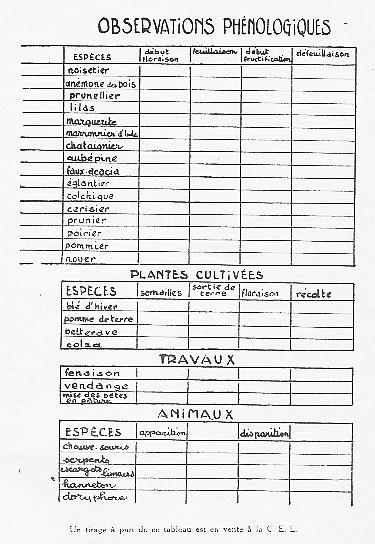 OBSERVATIONS PHÉNOLOGIQUES
ESPÈCES début floraison feuillaison début fructification défeuillaison
noisetier
anémone des bois
prunellier
lilas
marguerite
marronnier d'Inde
chataignier
aubépine
faux-acacia
églantier
colchique
cerisier
prunier
poirier
pommier
noyer
PLANTES CULTIVÉES
ESPÈCES semailles sortie de terre floraison récolte
blé d'hiver
pomme de terre
betterave
colza
TRAVAUX
fenaison
vendange
mise des bêtes en pature
ANIMAUX
ESPÈCES apparition disparition
chauve-souris
serpents
escargots limaces
hanneton
doryphore
Un tirage à part de ce tableau est en vente à la C. E. L.